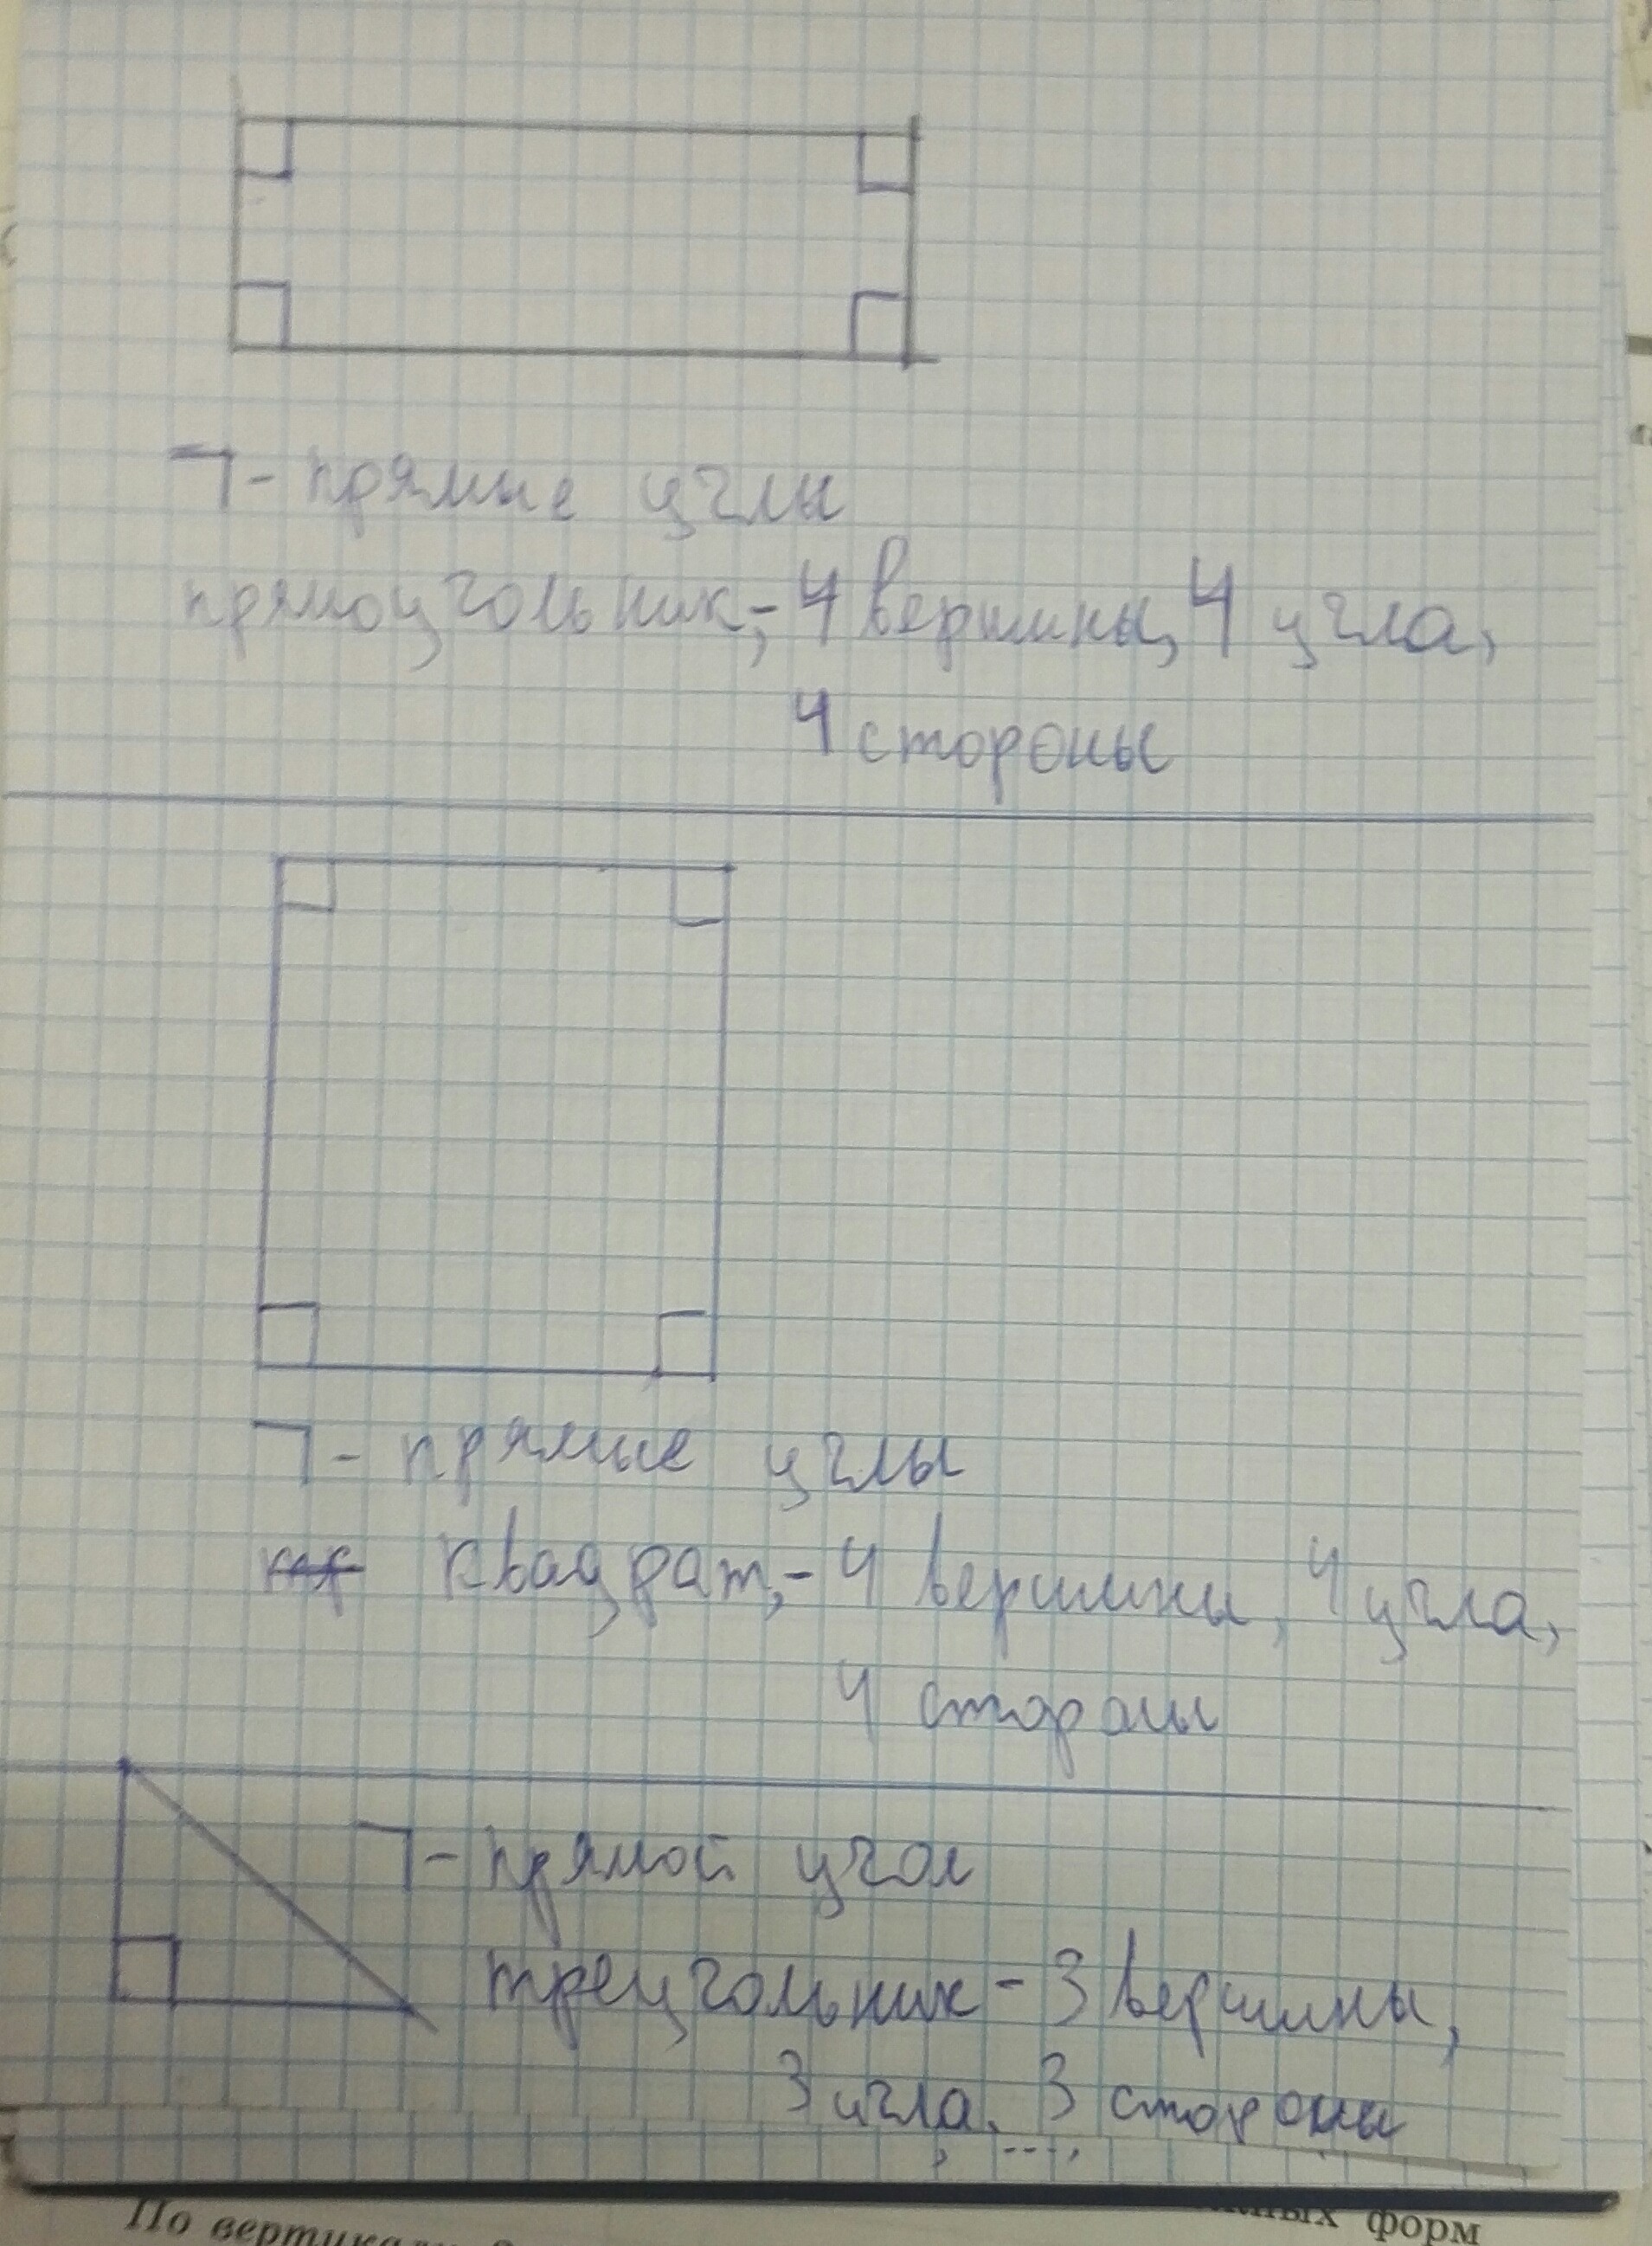 ㄱ- прямые углы
прямоугольник,- 4 вершины, 4 угла,
4 стороны
ㄱ- прямые углы
квадрат,- 4 вершины, 4 угла,
4 стороны
ㄱ- прямой угол
треугольник - 3 вершины,
3 угла, 3 стороны
По вертикали
форм